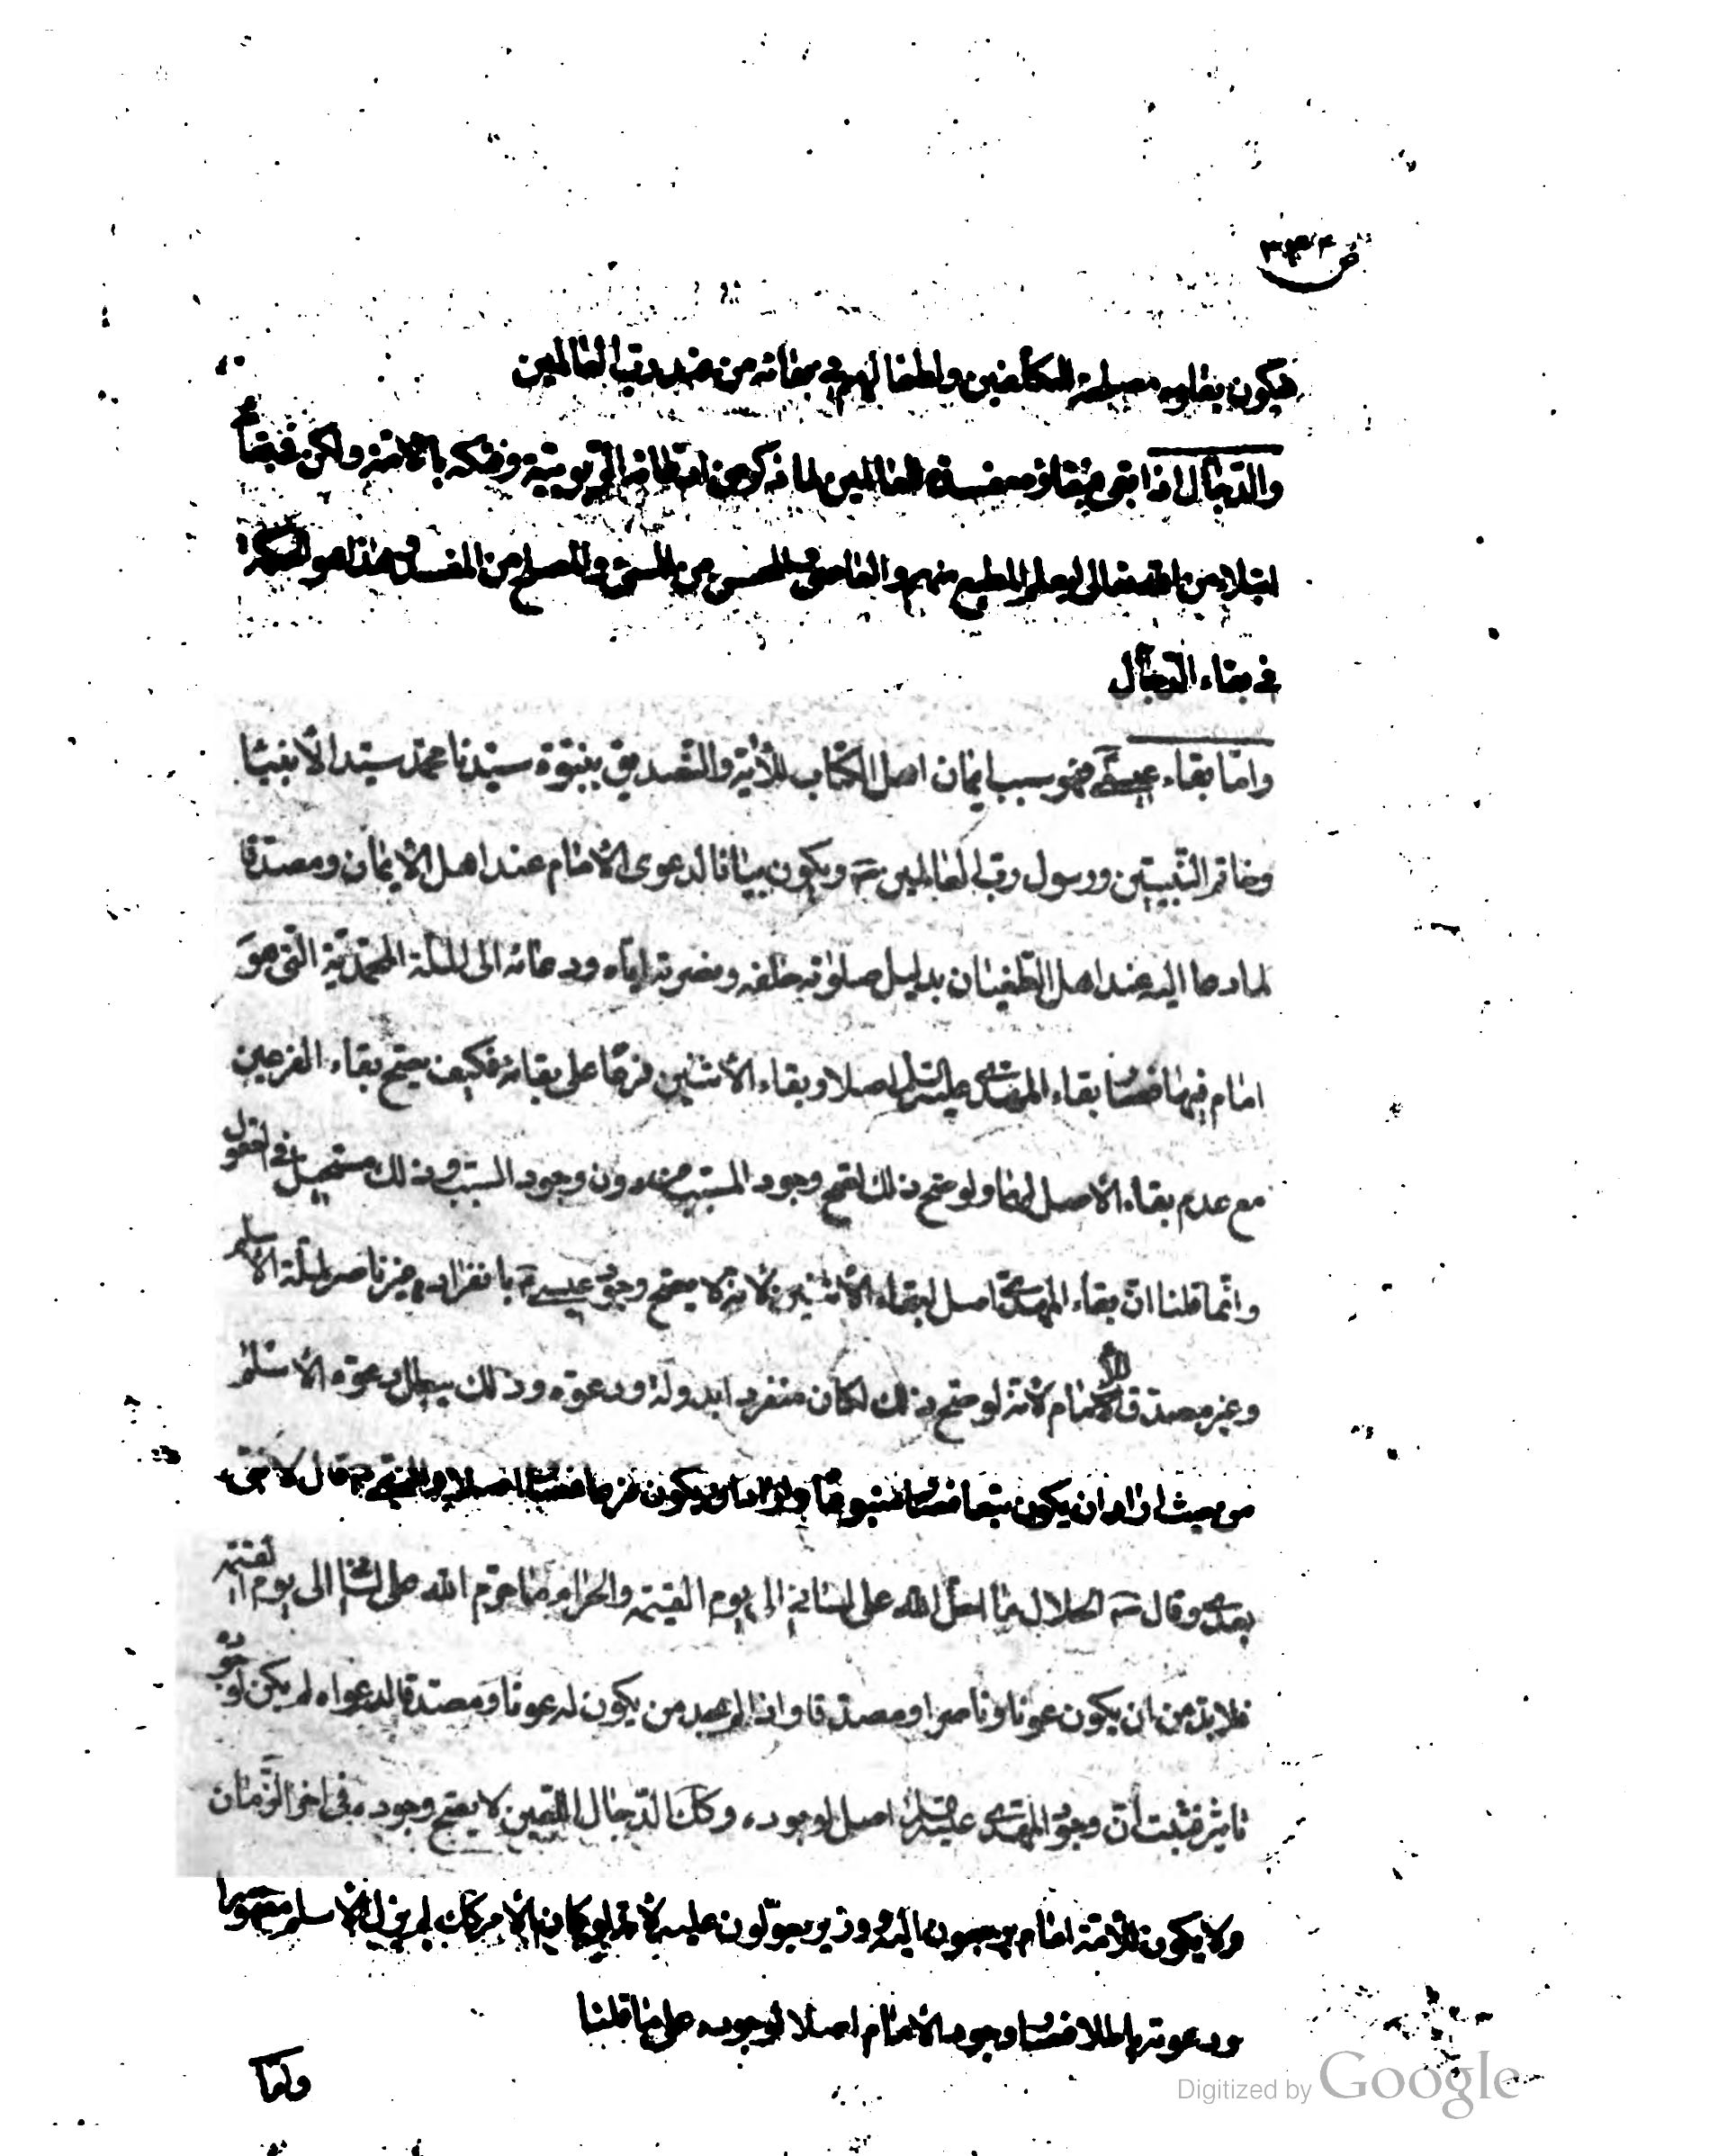 ص ٣٣٤
فيكون بقاؤه مصلحة للمكلفين ولطفا لهم في بقائه من عند رب العالمين
والدجال اذا بقى فبقاؤه مفسدة للعالمين لما ذكر من ادعائه الربوبية وفتكه بالامة ولكن في بقائه
ابتلاء من الله تعالى ليعلم المطيع منهم والعاصى والمحسن من المسىء والمصلح من المفسد وهذا هو الحكمة
في بقاء الدجال
وامّا بقاء عيسىؑ فهو سبب ايمان اهل الكتاب للآية والتصديق بنبوّة سيّدنا محمّد سيّد الأنبياء
وخاتم النّبيّين ورسول ربّ العالمين صؐ ويكون بيانا لدعوى الامام عند اهل الايمان ومصدّقا
لما دعا اليه عند اهل الطّغيان بدليل صلوته خلفه ونصرته ايّاه ودعائه الى الملّة المحمّديّة الّتى هو
امام فيها فصار بقاء المهدى عليه السلم اصلا وبقاء الاثنين فرعا على بقائه فكيف يصحّ بقاء الفرعين
مع عدم بقاء الاصل لهما ولو صحّ ذلك لصحّ وجود المسبّب من دون وجود السّبب وذلك مستحيل في العقول
وانّما قلنا انّ بقاء المهدىؑ اصل لبقاء الاثنين لانّه لا يصحّ وجود عيسىؑ بانفراده غير ناصر لملّة الاسلم
وغير مصدّق للامام لانّه لو صحّ ذلك لكان منفردا بدولة ودعوة وذلك يبطل دعوة الاسلم
من حيث اراد ان يكون تبعا فصار متبوعا واراد ان يكون فرعا فصار اصلا والنبىّ صؐ قال لا نبىّ
بعدى وقال صؐ الحلال ما احلّ الله على لسانى الى يوم القيمة والحرام ما حرّم الله على لسانى الى يوم القيمة
فلا بدّ من ان يكون عونا وناصرا ومصدّقا واذا لم يجد من يكون له عونا ومصدّقا لدعواه لم يكن لوجوده
تاثير فثبت انّ وجود المهدى عليه السلم اصل لوجوده وكذا الدّجال اللّعين لا يصحّ وجوده في اخر الزّمان
ولا يكون للامّة امام يرجعون اليه ووزير يعوّلون عليه لانّه لو كان الامر كذلك لم يزل الاسلم مقهورا
ودعوته باطلا فصار وجود الامام اصلا لوجوده على ما قلنا
وامّا
Digitized by Google